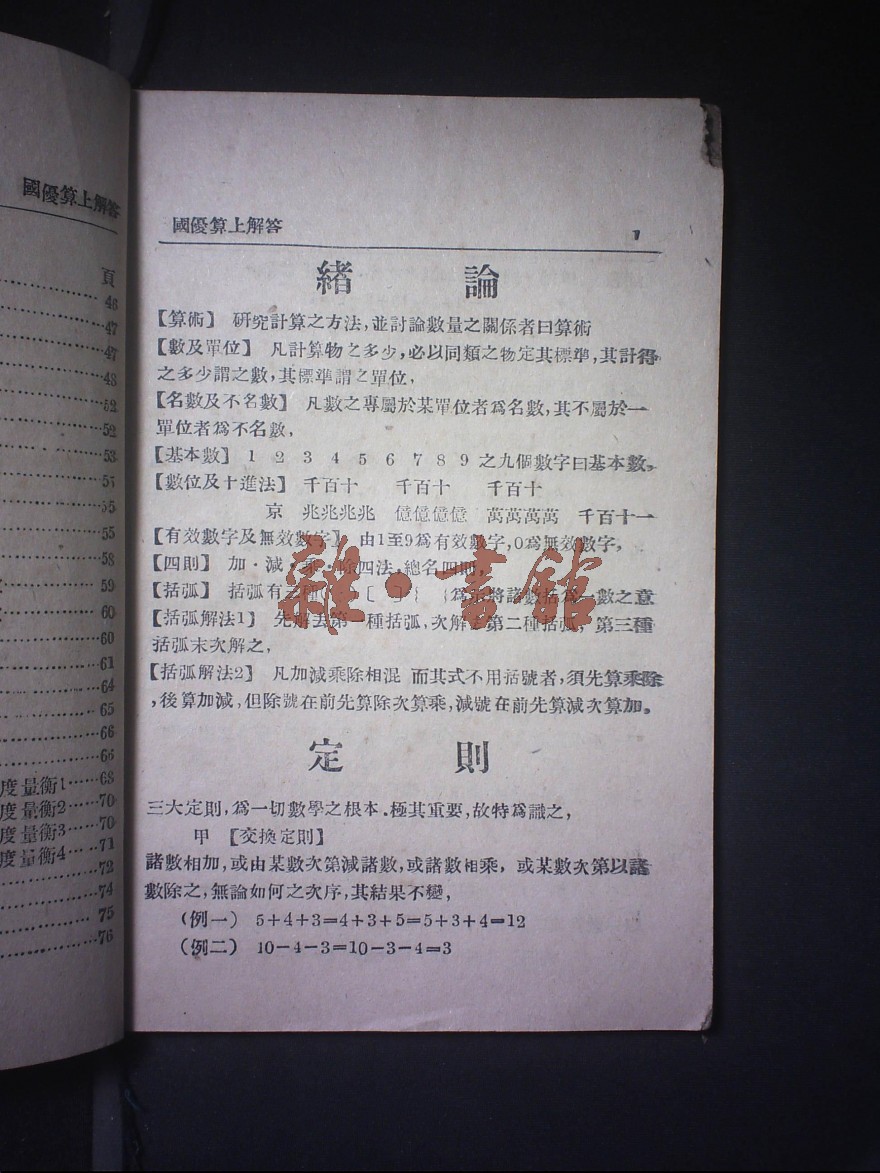 國優算上解答
頁
46
47
47
48
52
52
53
55
55
58
59
60
60
61
64
65
66
66
度量衡1……68
度量衡2……70
度量衡3……70
度量衡4……71
72
74
75
76
國優算上解答 1
緒論
【算術】 研究計算之方法,並討論數量之關係者曰算術
【數及單位】 凡計算物之多少,必以同類之物定其標準,其計得
之多少謂之數,其標準謂之單位,
【名數及不名數】 凡數之專屬於某單位者爲名數,其不屬於一
單位者爲不名數,
【基本數】 1 2 3 4 5 6 7 8 9 之九個數字曰基本數。
【數位及十進法】 千百十 千百十 千百十
京 兆兆兆兆 億億億億 萬萬萬萬 千百十一
【有效數字及無效數字】 由1至9爲有效數字,0爲無效數字,
【四則】 加·減·乘·除四法,總名四則
【括弧】 括弧有三種 [ ] { 爲示將諸數括爲一數之意
【括弧解法1】 先解去第一種括弧,次解 第二種括弧, 第三種
括弧末次解之,
【括弧解法2】 凡加減乘除相混 而其式不用括號者,須先算乘除
,後算加減,但除號在前先算除次算乘,減號在前先算減次算加。
定則
三大定則,爲一切數學之根本.極其重要,故特爲識之,
甲 【交換定則】
諸數相加,或由某數次第減諸數,或諸數相乘, 或某數次第以諸
數除之,無論如何之次序,其結果不變,
(例一) 5+4+3=4+3+5=5+3+4=12
(例二) 10-4-3=10-3-4=3
雜·書館